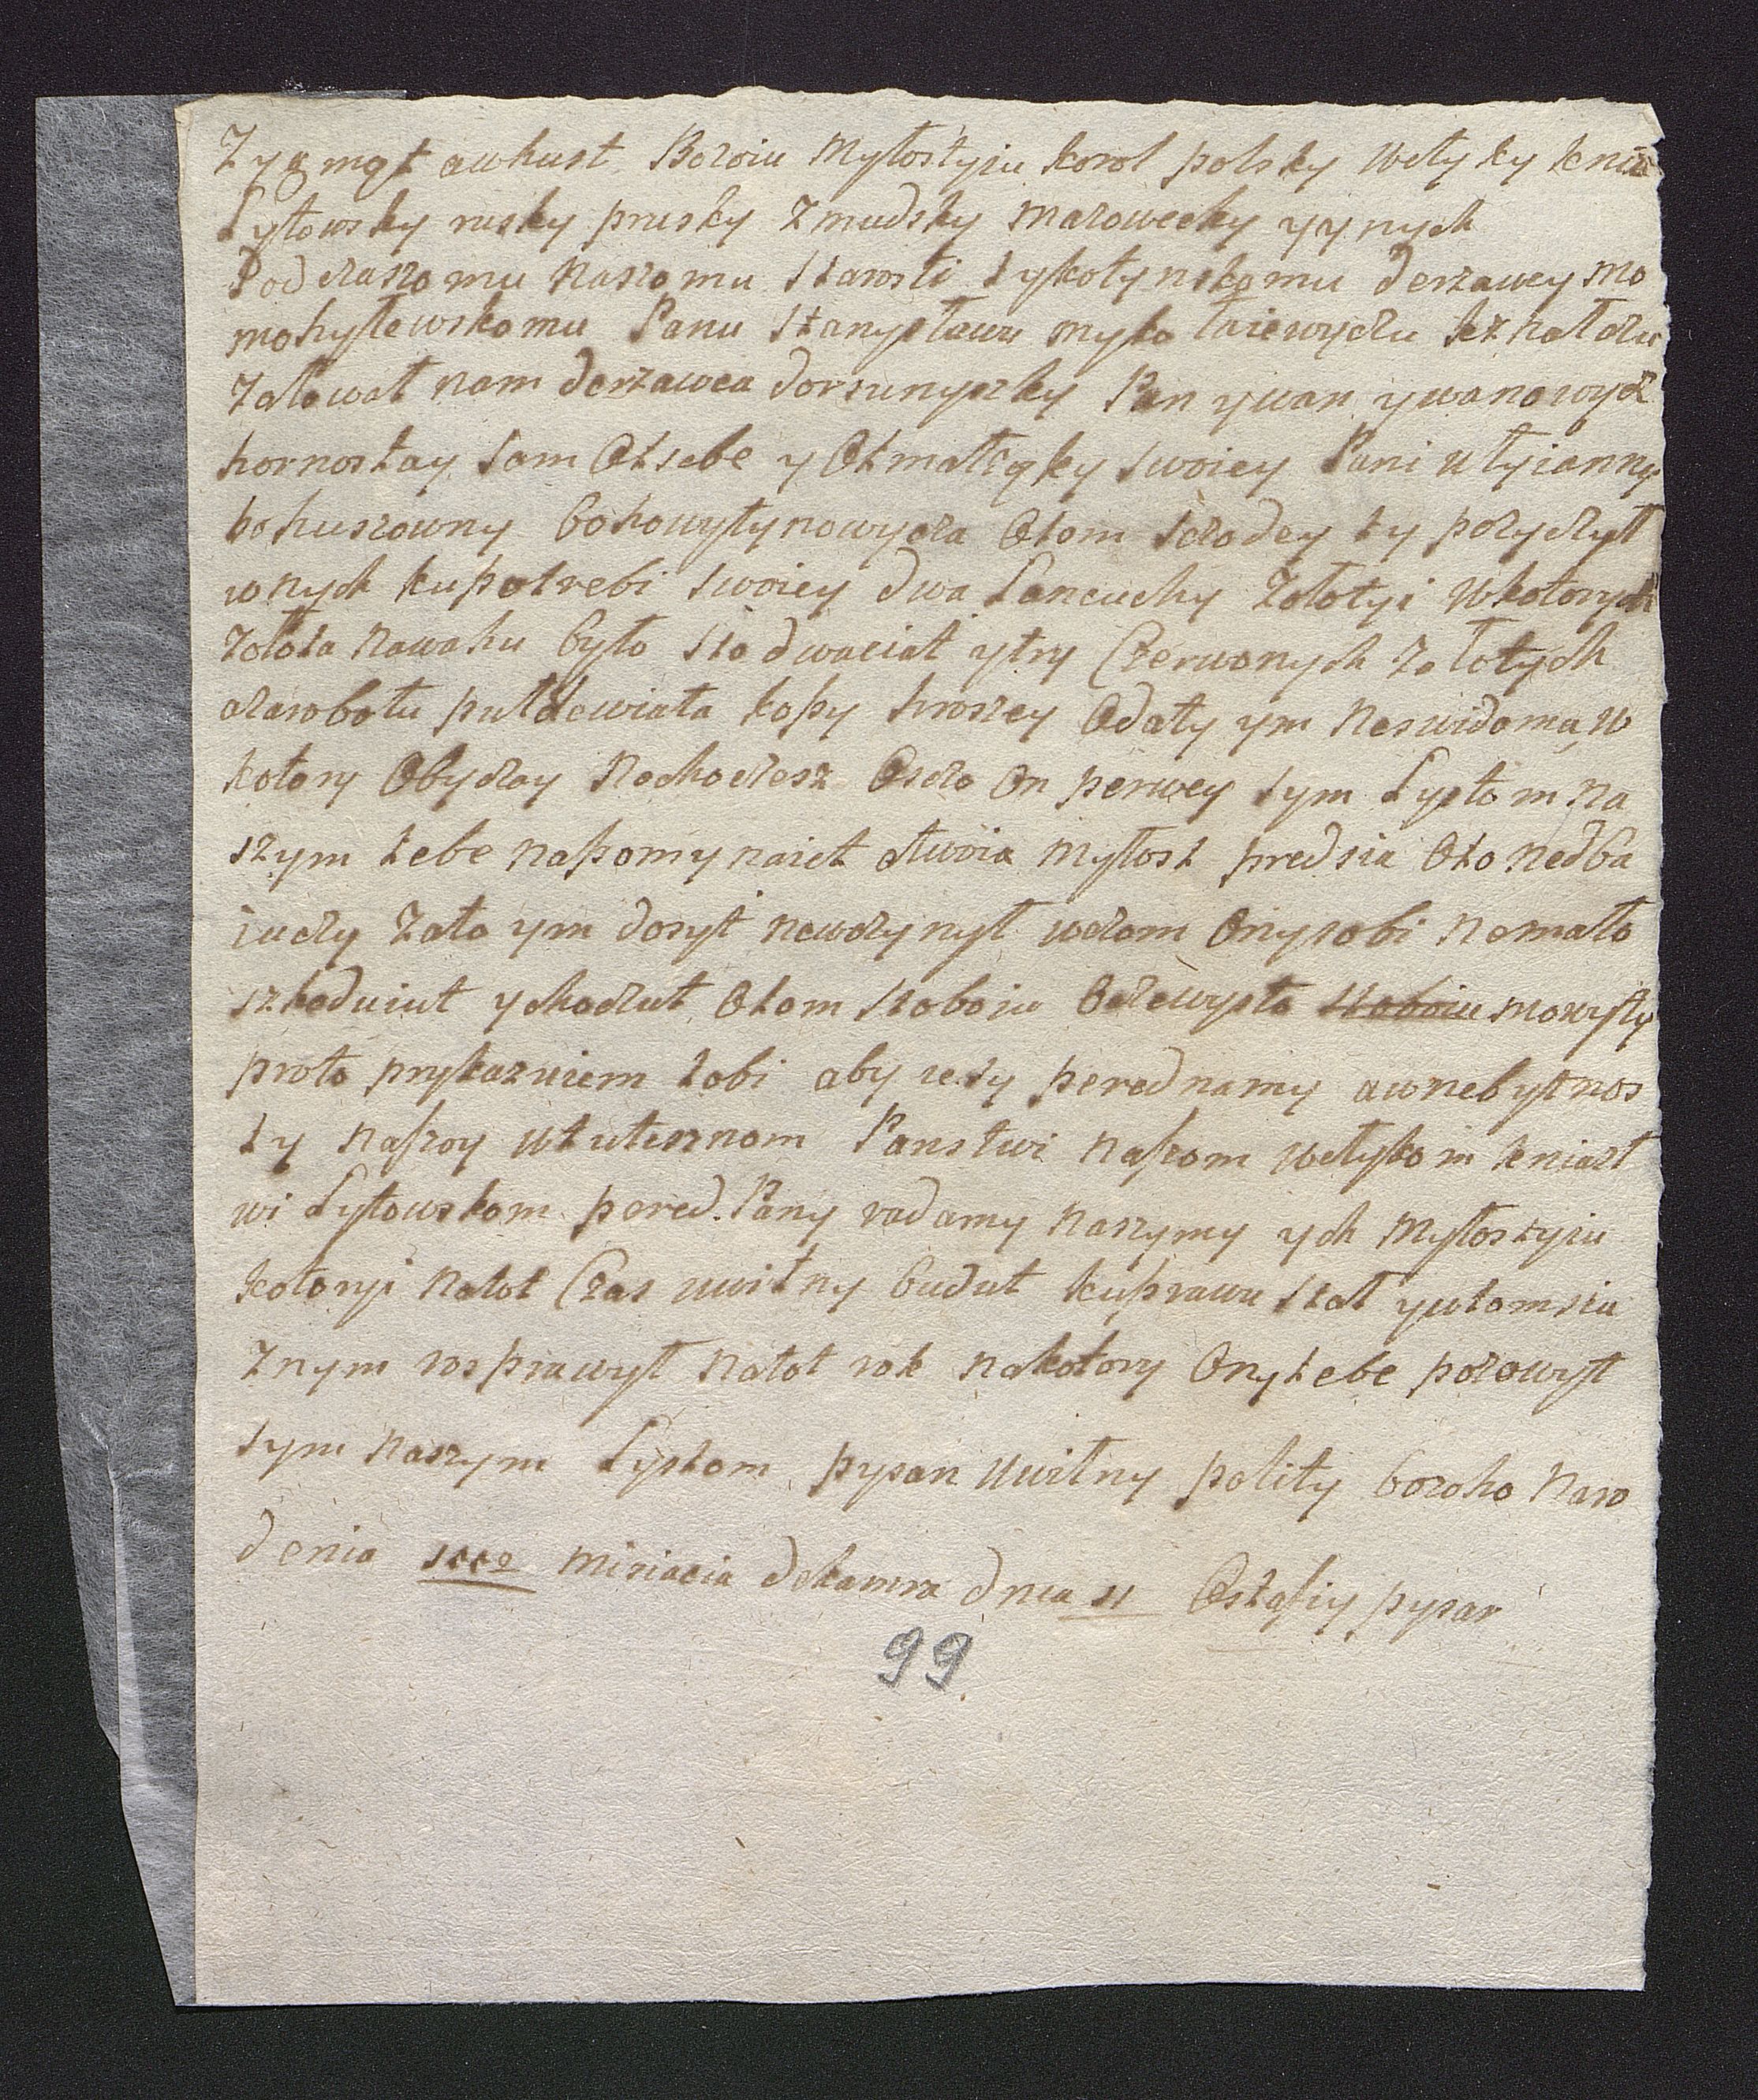 Zygmąt awhust Bozoiu Mylostyiu korol polsky wełyky kniż
Lytowsky rusky prusky Zmudsky mazowecky y ynych
Podczaszomu naszomu starosti tykotynskomu derzawcy mo
mohylewskomu Panu Stanysławu mykołaiewyczu keznołozu
Załował nam derzawca dorsunyszky Pan ywan ywanowycz
hornostay sam Otsebe y Otmałtąky swoiey Pani ułyianny
bohuszowny bohowytynowycza Otom szczodey ty pozyczył
wnych kupotrebi swoiey dwa Lancuchy Zołotyi wkotorych
zołota nawahu było sto dwaciat ytry Czerwonych zołotych
ozarobotu pułdewiata kopy hroszey Odaty ym neswidomą w
kotory Obyczay nechoczesz Oszczo On perwey sym Lystom na
szym tebe napomynaiet atwoia mylost predsia Oto nedba
iuczy Zato ym dosyt neuczynył wczom Onysobi nemało
szkoduiut ychoczut Otom stoboiu Oczewysto stoboiu mowyty
proto prykazuiem tobi aby iesy perednamy awnebytnos
ty naszoy wtutesznom Panstwi naszom wełykom kniazt
wi Lytowskom pered Pany radamy naszymy ych mylostyiu
kotoryi natot Czas uwilny budut kuprawu stał ywtomsia
znym rosprawył natot rok nakotory Onytebe pozowył
sym naszym Lystom pysan Uwilny polity bozoho naro
denia 1552 misiacia dekamra dnia 11 Ostafiy pysar
99